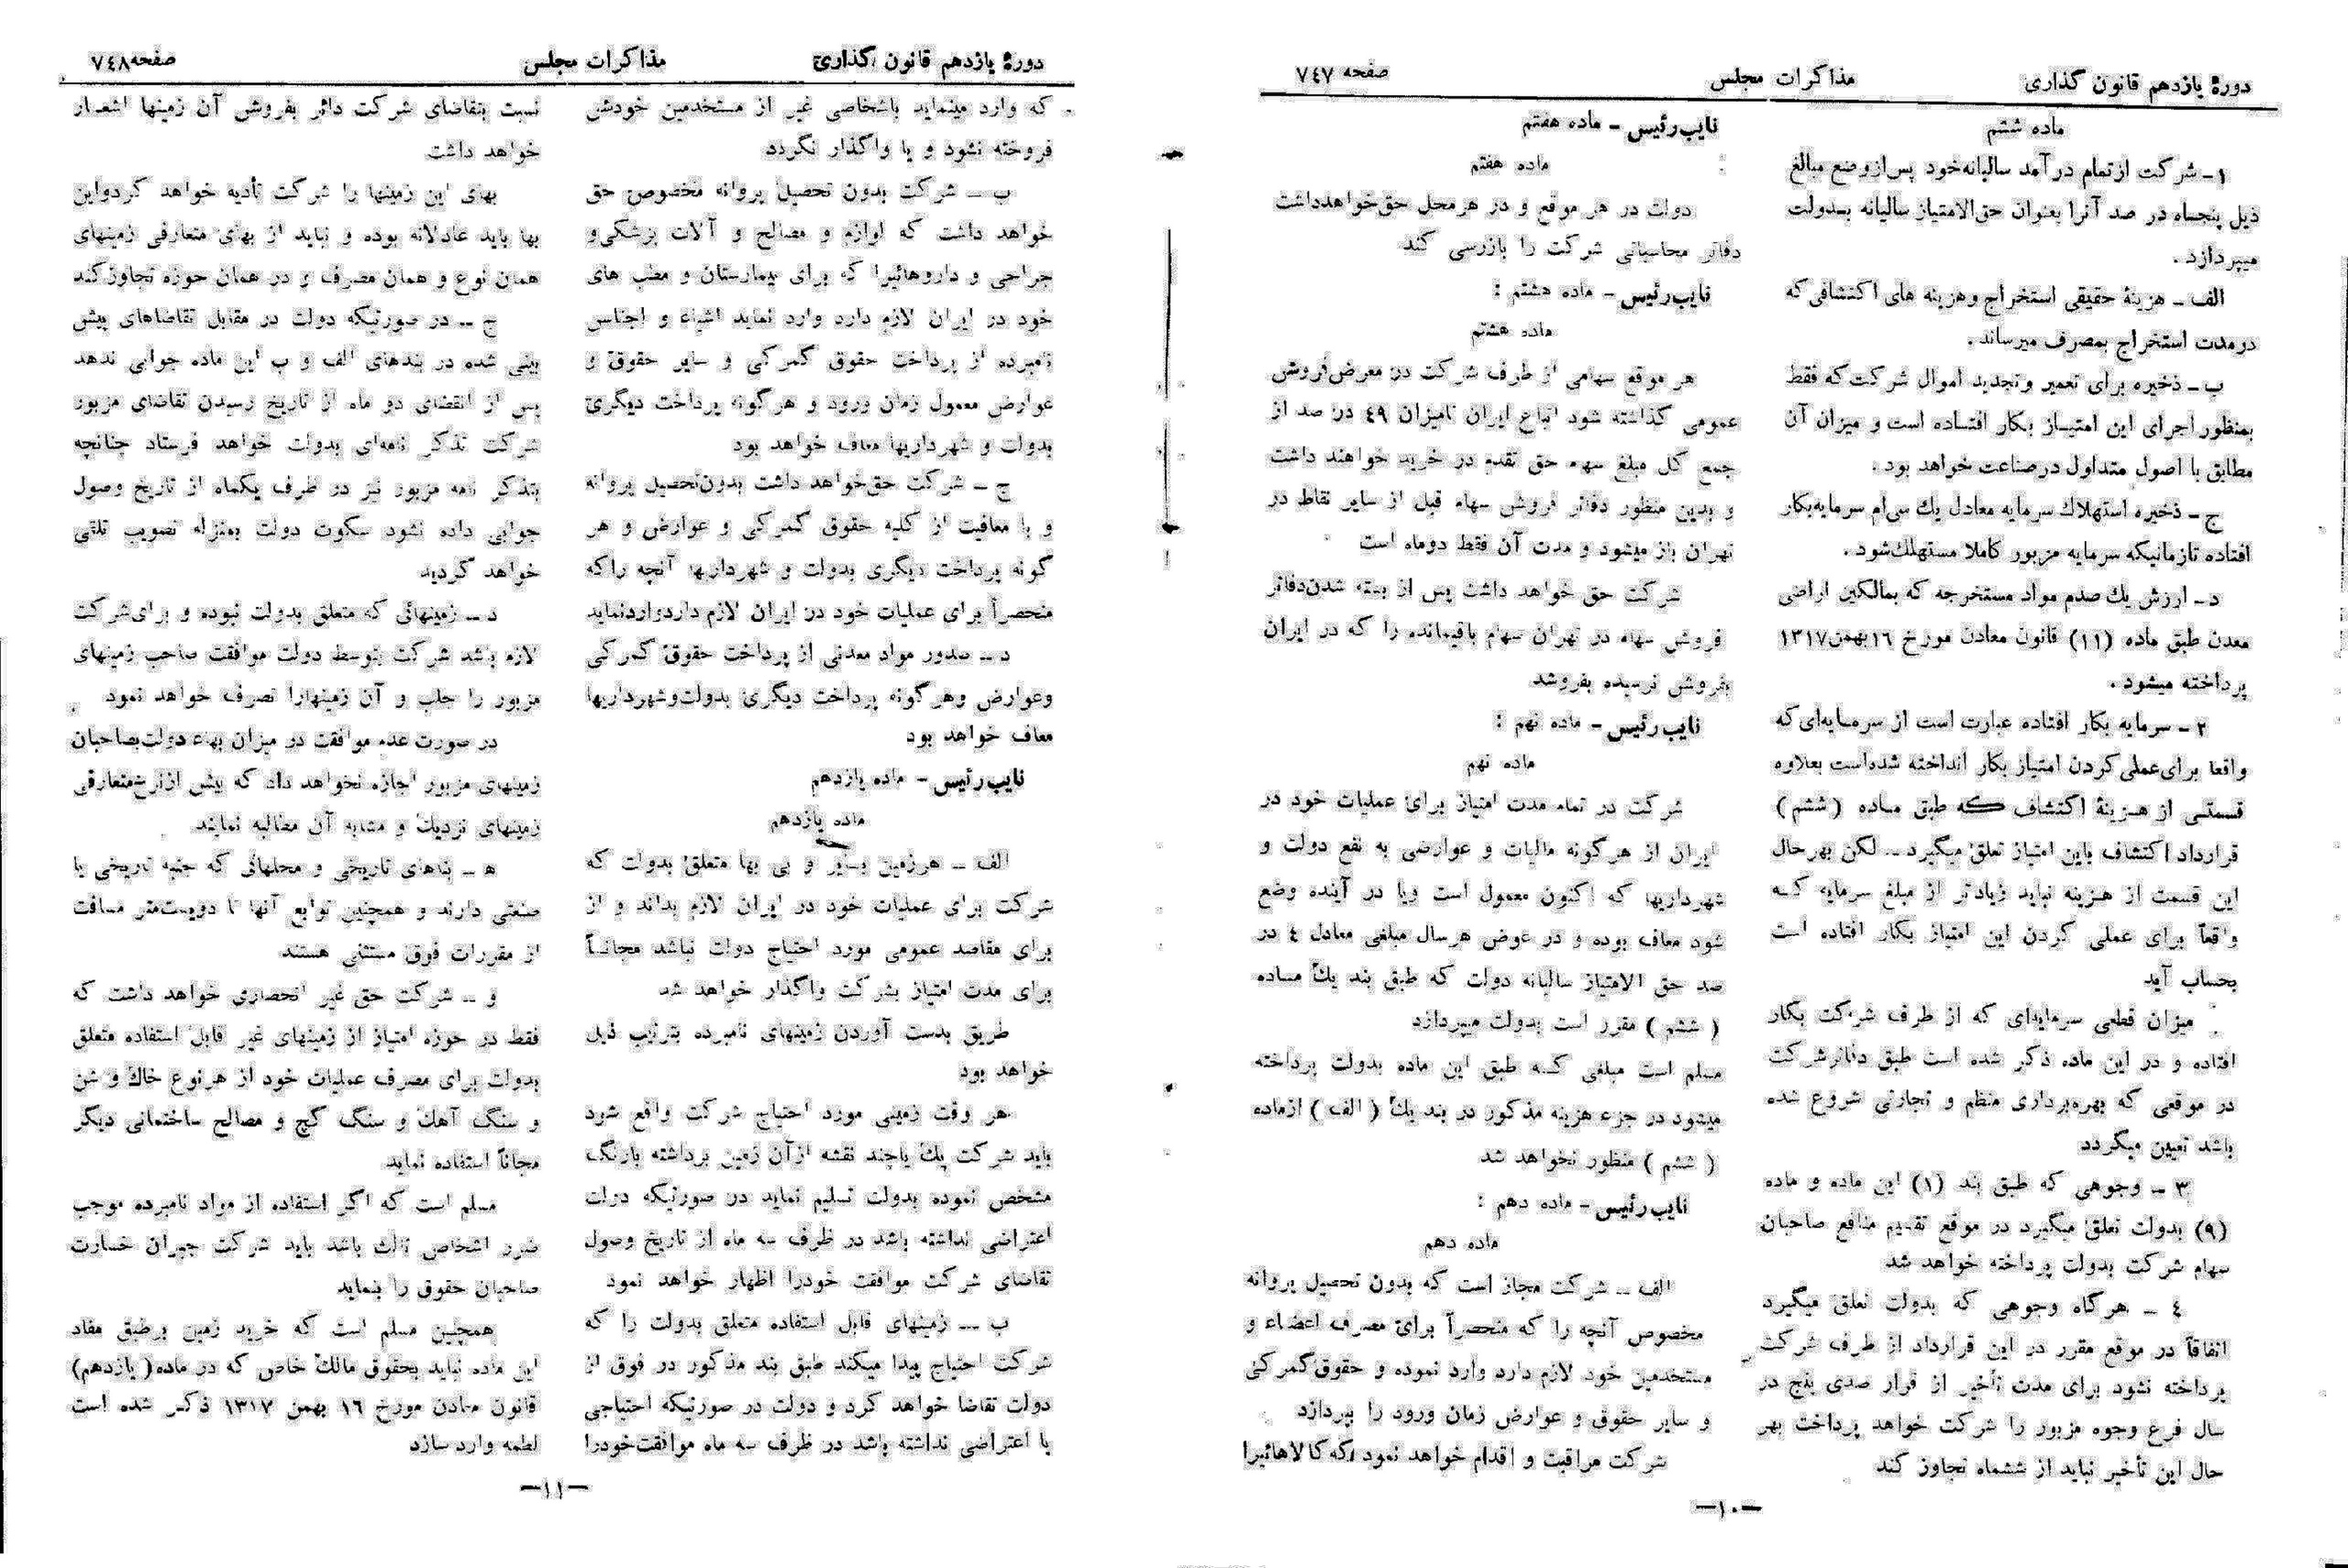 دورهٔ یازدهم قانون گذاری مذاکرات مجلس صفحه ۷٤۷
ماده ششم
۱- شرکت از تمام درآمد سالیانه خود پس از وضع مبالغ
ذیل پنجاه در صد آنرا بعنوان حق‌الامتیاز سالیانه بدولت
میپردازد .
الف - هزینهٔ حقیقی استخراج و هزینه های اکتشافی که
در مدت استخراج بمصرف میرساند .
ب - ذخیره برای تعمیر و تجدید اموال شرکت که فقط
بمنظور اجرای این امتیاز بکار افتاده است و میزان آن
مطابق با اصول متداول در صناعت خواهد بود .
ج - ذخیره استهلاك سرمایه معادل یك سی‌ام سرمایه بکار
افتاده تا زمانیکه سرمایه مزبور کاملا مستهلك شود .
د - ارزش یك صدم مواد مستخرجه که بمالکین اراضی
معدن طبق ماده (۱۱) قانون معادن مورخ ۱٦ بهمن ۱۳۱۷
پرداخته میشود .
۲ - سرمایه بکار افتاده عبارت است از سرمایه‌ای که
واقعا برای عملی کردن امتیاز بکار انداخته شده‌است بعلاوه
قسمتی از هزینهٔ اکتشاف که طبق ماده (ششم)
قرارداد اکتشاف باین امتیاز تعلق میگیرد - لکن بهرحال
این قسمت از هزینه نباید زیادتر از مبلغ سرمایه که
واقعاً برای عملی کردن این امتیاز بکار افتاده است
بحساب آید
میزان قطعی سرمایه‌ای که از طرف شرکت بکار
افتاده و در این ماده ذکر شده است طبق دفاتر شرکت
در موقعی که بهره‌برداری منظم و تجارتی شروع شده
باشد تعیین میگردد
۳ - وجوهی که طبق بند (۱) این ماده و ماده
(۹) بدولت تعلق میگیرد در موقع تقسیم منافع صاحبان
سهام شرکت بدولت پرداخته خواهد شد
٤ - هرگاه وجوهی که بدولت تعلق میگیرد
اتفاقاً در موقع مقرر در این قرارداد از طرف شرکت
پرداخته نشود برای مدت تأخیر از قرار صدی پنج در
سال فرع وجوه مزبور را شرکت خواهد پرداخت بهر
حال این تأخیر نباید از ششماه تجاوز کند
نایب رئیس - ماده هفتم
ماده هفتم
دولت در هر موقع و در هر محل حق خواهد داشت
دفاتر محاسباتی شرکت را بازرسی کند
نایب رئیس - ماده هشتم :
ماده هشتم
هر موقع سهامی از طرف شرکت در معرض فروش
عمومی گذاشته شود اتباع ایران تا میزان ٤۹ در صد از
جمع کل مبلغ سهام حق تقدم در خرید خواهند داشت
و بدین منظور دفاتر فروش سهام قبل از سایر نقاط در
تهران باز میشود و مدت آن فقط دو ماه است
شرکت حق خواهد داشت پس از بسته شدن دفاتر
فروش سهام در تهران سهام باقیمانده را که در ایران
بفروش نرسیده بفروشد
نایب رئیس - ماده نهم :
ماده نهم
شرکت در تمام مدت امتیاز برای عملیات خود در
ایران از هرگونه مالیات و عوارضی به نفع دولت و
شهرداریها که اکنون معمول است و یا در آینده وضع
شود معاف بوده و در عوض هر سال مبلغی معادل ٤ در
صد حق الامتیاز سالیانه دولت که طبق بند یك ماده
( ششم ) مقرر است بدولت میپردازد
مسلم است مبلغی که طبق این ماده بدولت پرداخته
میشود در جزء هزینه مذکور در بند یك ( الف ) از ماده
( ششم ) منظور نخواهد شد
نایب رئیس - ماده دهم :
ماده دهم
الف - شرکت مجاز است که بدون تحصیل پروانه
مخصوص آنچه را که منحصراً برای مصرف اعضاء و
مستخدمین خود لازم دارد وارد نموده و حقوق گمرکی
و سایر حقوق و عوارض زمان ورود را بپردازد
شرکت مراقبت و اقدام خواهد نمود که کالاهائیرا
-۱۰-
دورهٔ یازدهم قانون گذاری مذاکرات مجلس صفحه ۷٤۸
که وارد مینماید باشخاصی غیر از مستخدمین خودش
فروخته نشود و یا واگذار نگردد
ب - شرکت بدون تحصیل پروانه مخصوص حق
خواهد داشت که لوازم و مصالح و آلات پزشکی و
جراحی و داروهائیرا که برای بیمارستان و مطب های
خود در ایران لازم دارد وارد نماید اشیاء و اجناس
نامبرده از پرداخت حقوق گمرکی و سایر حقوق و
عوارض معمول زمان ورود و هرگونه پرداخت دیگری
بدولت و شهرداریها معاف خواهد بود
ج - شرکت حق خواهد داشت بدون تحصیل پروانه
و با معافیت از کلیه حقوق گمرکی و عوارض و هر
گونه پرداخت دیگری بدولت و شهرداریها آنچه را که
منحصراً برای عملیات خود در ایران لازم دارد وارد نماید
د - صدور مواد معدنی از پرداخت حقوق گمرکی
و عوارض و هرگونه پرداخت دیگری بدولت و شهرداریها
معاف خواهد بود
نایب رئیس - ماده یازدهم
ماده یازدهم
الف - هر زمین بایر و بی بها متعلق بدولت که
شرکت برای عملیات خود در ایران لازم بداند و از
برای مقاصد عمومی مورد احتیاج دولت نباشد مجاناً
برای مدت امتیاز بشرکت واگذار خواهد شد
طریق بدست آوردن زمینهای نامبرده بترتیب ذیل
خواهد بود
هر وقت زمینی مورد احتیاج شرکت واقع شود
باید شرکت یك یا چند نقشه از آن زمین برداشته با رنگ
مشخص نموده بدولت تسلیم نماید در صورتیکه دولت
اعتراضی نداشته باشد در ظرف سه ماه از تاریخ وصول
تقاضای شرکت موافقت خودرا اظهار خواهد نمود
ب - زمینهای قابل استفاده متعلق بدولت را که
شرکت احتیاج پیدا میکند طبق بند مذکور در فوق از
دولت تقاضا خواهد کرد و دولت در صورتیکه احتیاجی
یا اعتراضی نداشته باشد در ظرف سه ماه موافقت خودرا
نسبت بتقاضای شرکت دائر بفروش آن زمینها اشعار
خواهد داشت
بهای این زمینها را شرکت تأدیه خواهد کرد و این
بها باید عادلانه بوده و نباید از بهای متعارفی زمینهای
همان نوع و همان مصرف و در همان حوزه تجاوز کند
ج - در صورتیکه دولت در مقابل تقاضاهای پیش
بینی شده در بندهای الف و ب این ماده جوابی ندهد
پس از انقضای دو ماه از تاریخ رسیدن تقاضای مزبور
شرکت تذکر نامه‌ای بدولت خواهد فرستاد چنانچه
بتذکر نامه مزبور نیز در ظرف یکماه از تاریخ وصول
جوابی داده نشود سکوت دولت بمنزله تصویب تلقی
خواهد گردید
د - زمینهائی که متعلق بدولت نبوده و برای شرکت
لازم باشد شرکت بتوسط دولت موافقت صاحب زمینهای
مزبور را جلب و آن زمینهارا تصرف خواهد نمود
در صورت عدم موافقت در میزان بهاء دولت بصاحبان
زمینهای مزبور اجازه نخواهد داد که بیش از نرخ متعارفی
زمینهای نزدیك و مشابه آن مطالبه نمایند
ه - بناهای تاریخی و محلهائی که جنبه تاریخی یا
صنعتی دارند و همچنین توابع آنها تا دویست متر مسافت
از مقررات فوق مستثنی هستند
و - شرکت حق غیر انحصاری خواهد داشت که
فقط در حوزه امتیاز از زمینهای غیر قابل استفاده متعلق
بدولت برای مصرف عملیات خود از هر نوع خاك و شن
و سنگ آهك و سنگ گچ و مصالح ساختمانی دیگر
مجاناً استفاده نماید
مسلم است که اگر استفاده از مواد نامبرده موجب
ضرر اشخاص ثالث باشد باید شرکت جبران خسارت
صاحبان حقوق را بنماید
همچنین مسلم است که خرید زمین برطبق مفاد
این ماده نباید بحقوق مالك خاص که در ماده (یازدهم)
قانون معادن مورخ ۱٦ بهمن ۱۳۱۷ ذکر شده است
لطمه وارد سازد
-۱۱-